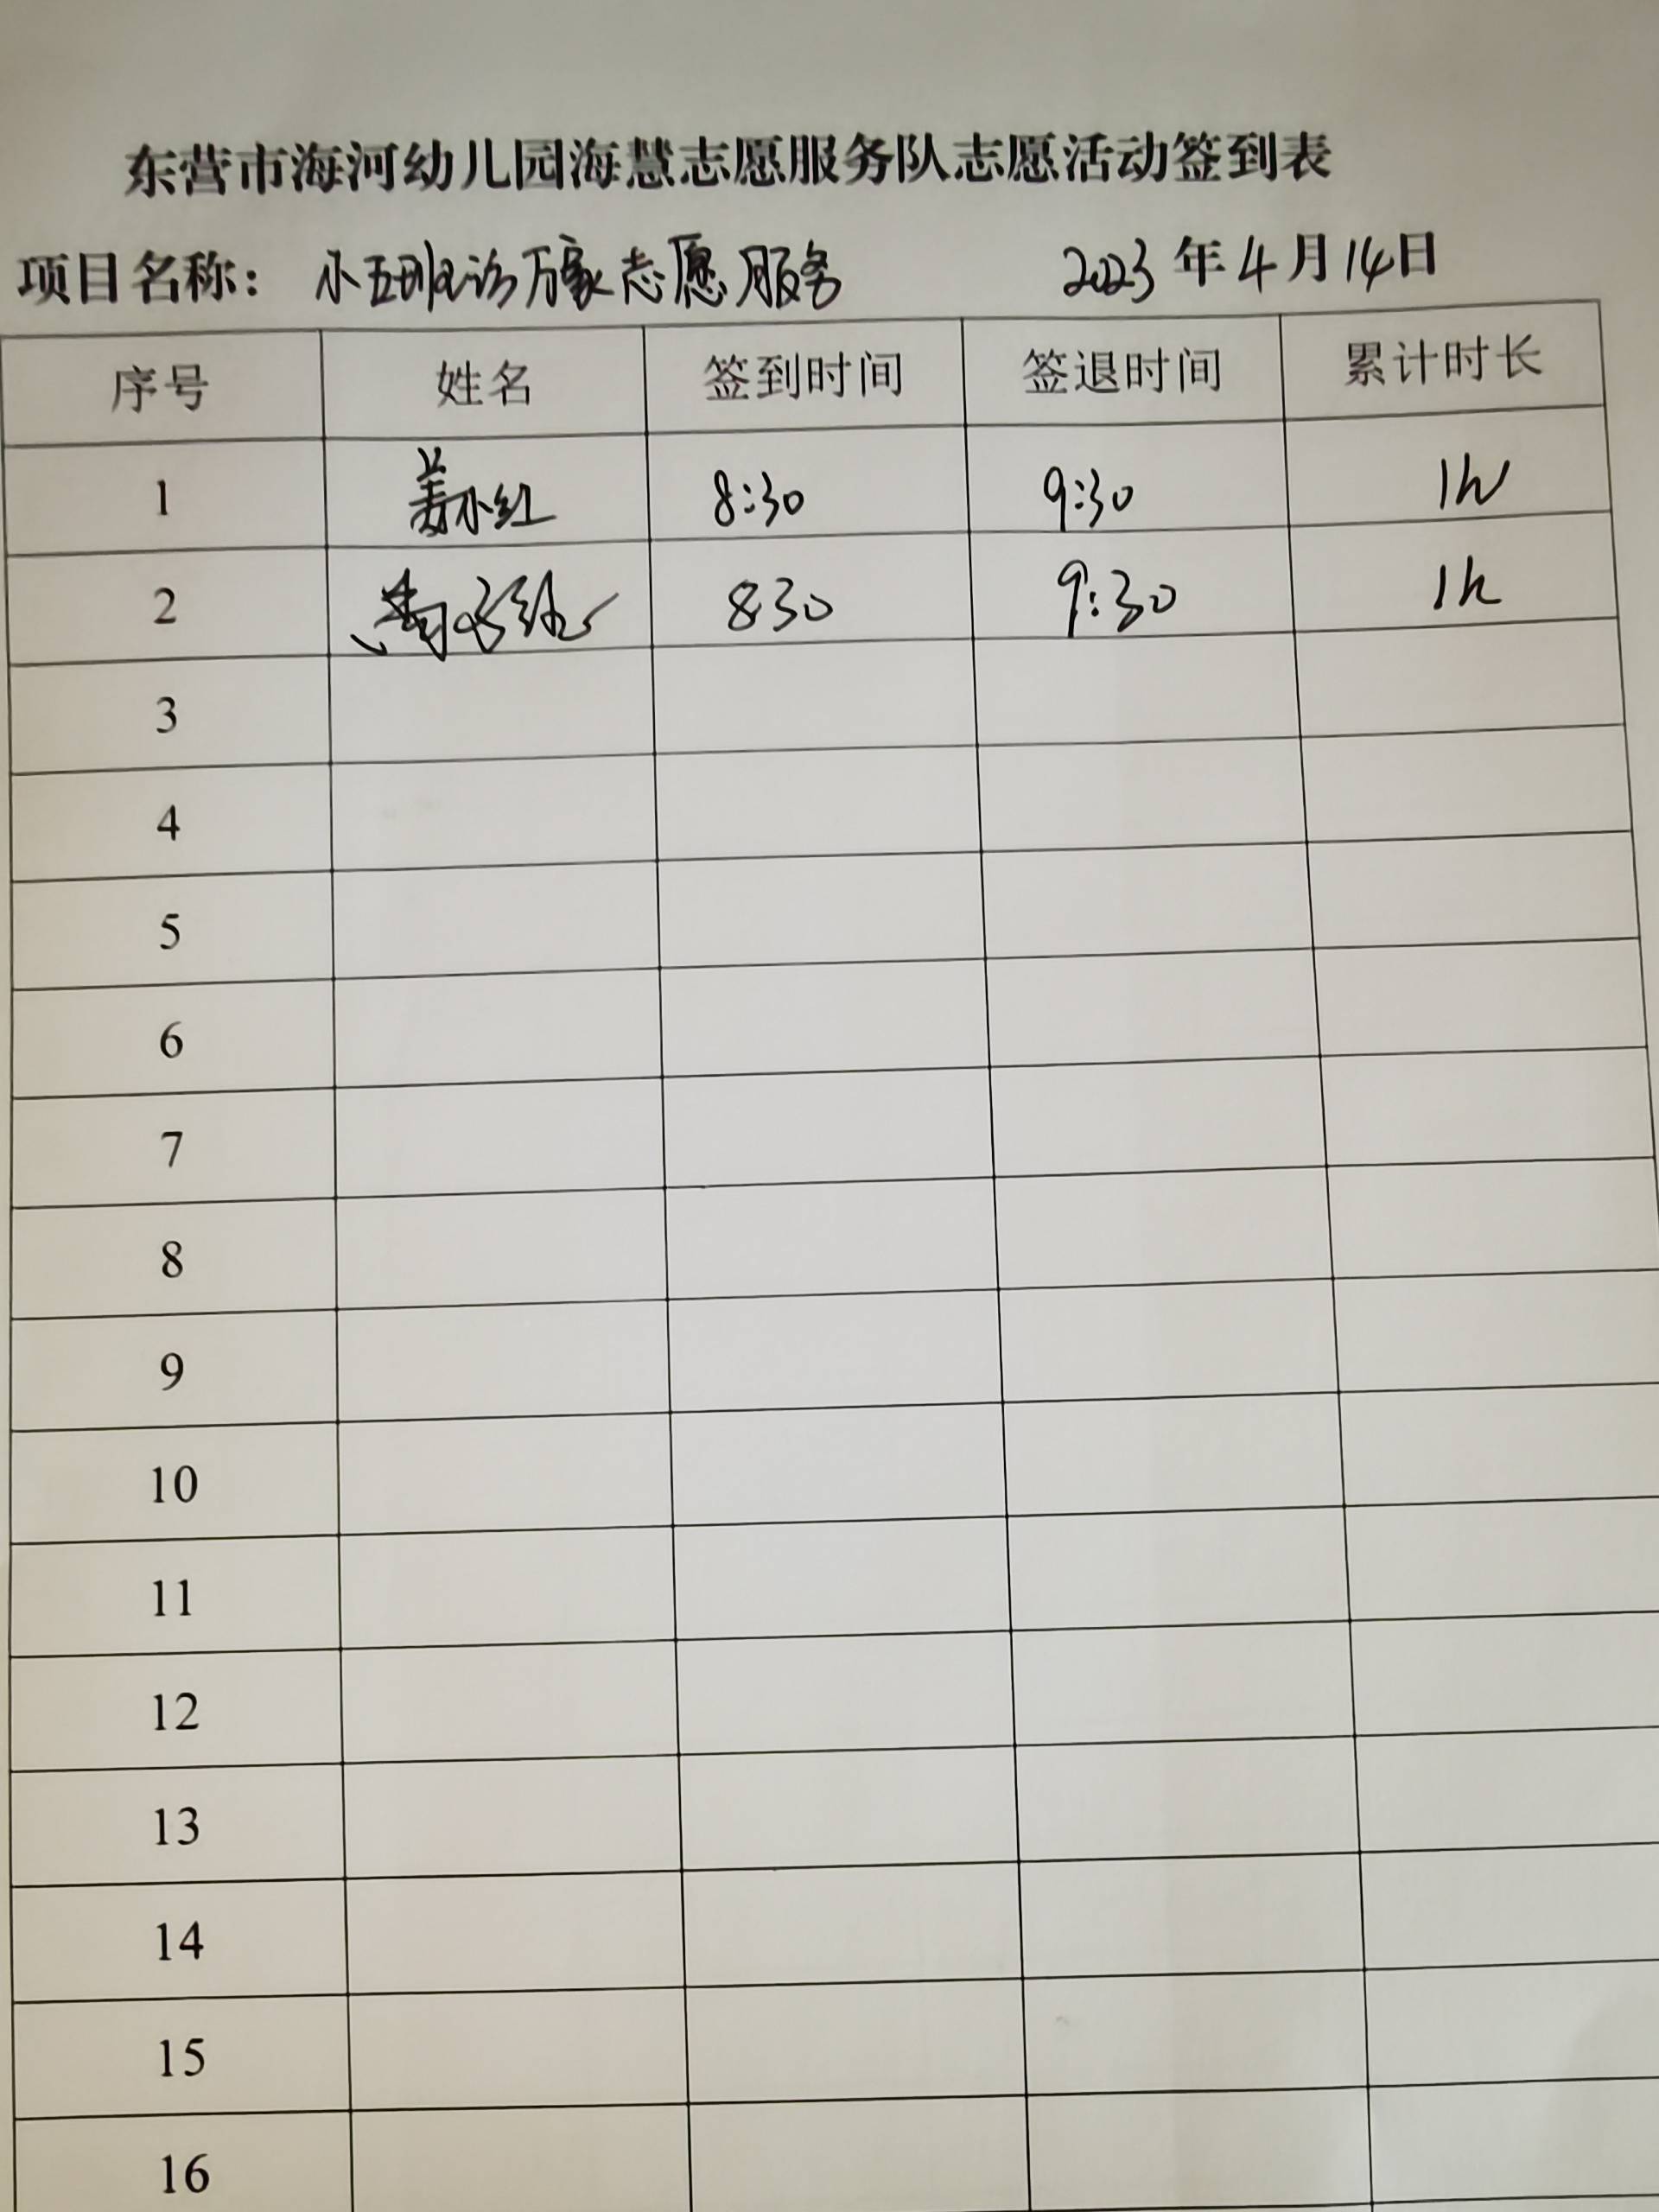 东营市海河幼儿园海慧志愿服务队志愿活动签到表
项目名称： 小五班访万家志愿服务 2023 年 4 月 14 日
序号 姓名 签到时间 签退时间 累计时长
1 姜小红 8:30 9:30 1h
2 830 9:30 1h
3
4
5
6
7
8
9
10
11
12
13
14
15
16